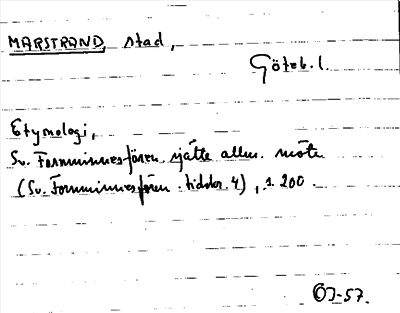 MARSTRAND, stad,
Göteb.l.
Etymologi,
Sv. Fornminnesfören. sjätte allm. möte
(Sv. Fornminnesfören. tidskr. 4), s. 200.
OJ-57.